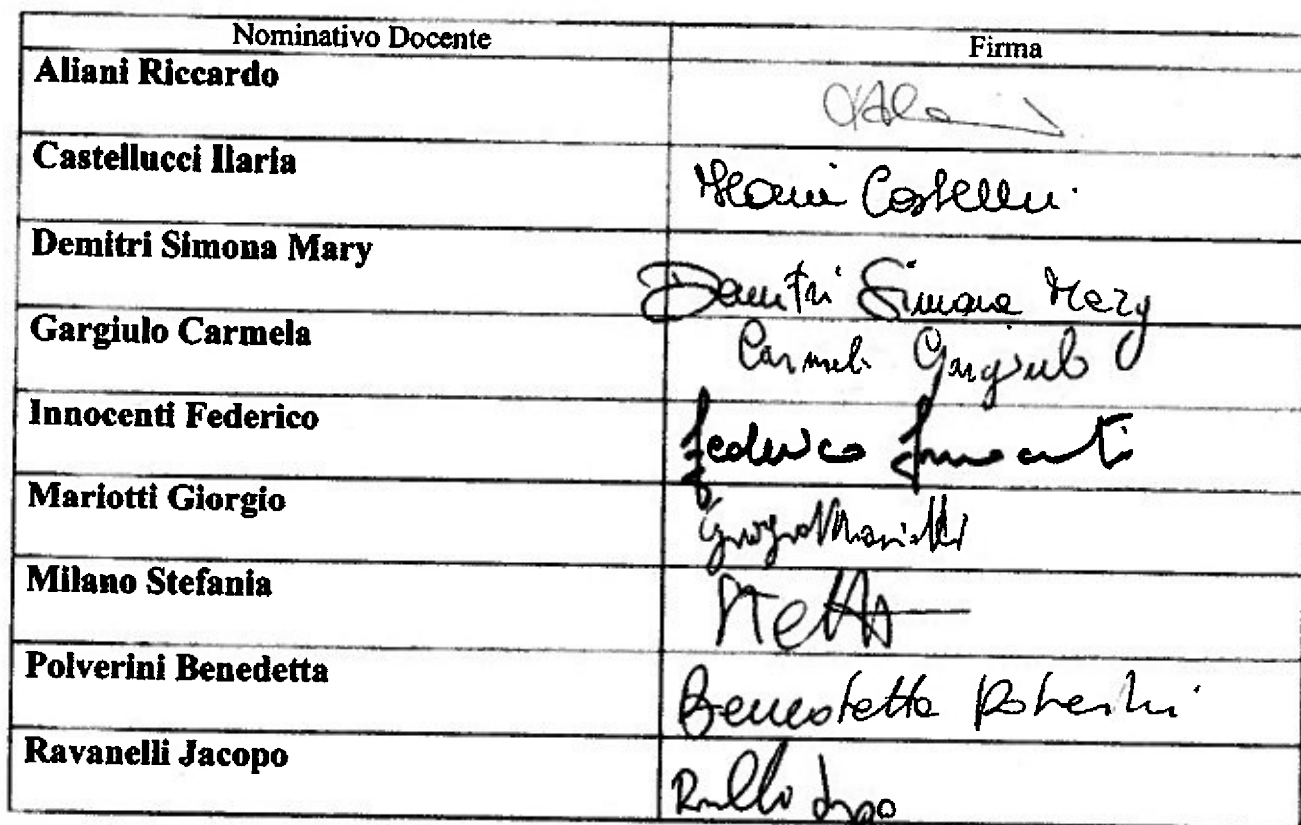 Nominativo Docente Firma
Aliani Riccardo
Castellucci Ilaria
Demitri Simona Mary Demitri Simona Mary
Gargiulo Carmela Carmela Gargiulo
Innocenti Federico Federico Innocenti
Mariotti Giorgio Giorgio Mariotti
Milano Stefania
Polverini Benedetta Benedetta Polverini
Ravanelli Jacopo